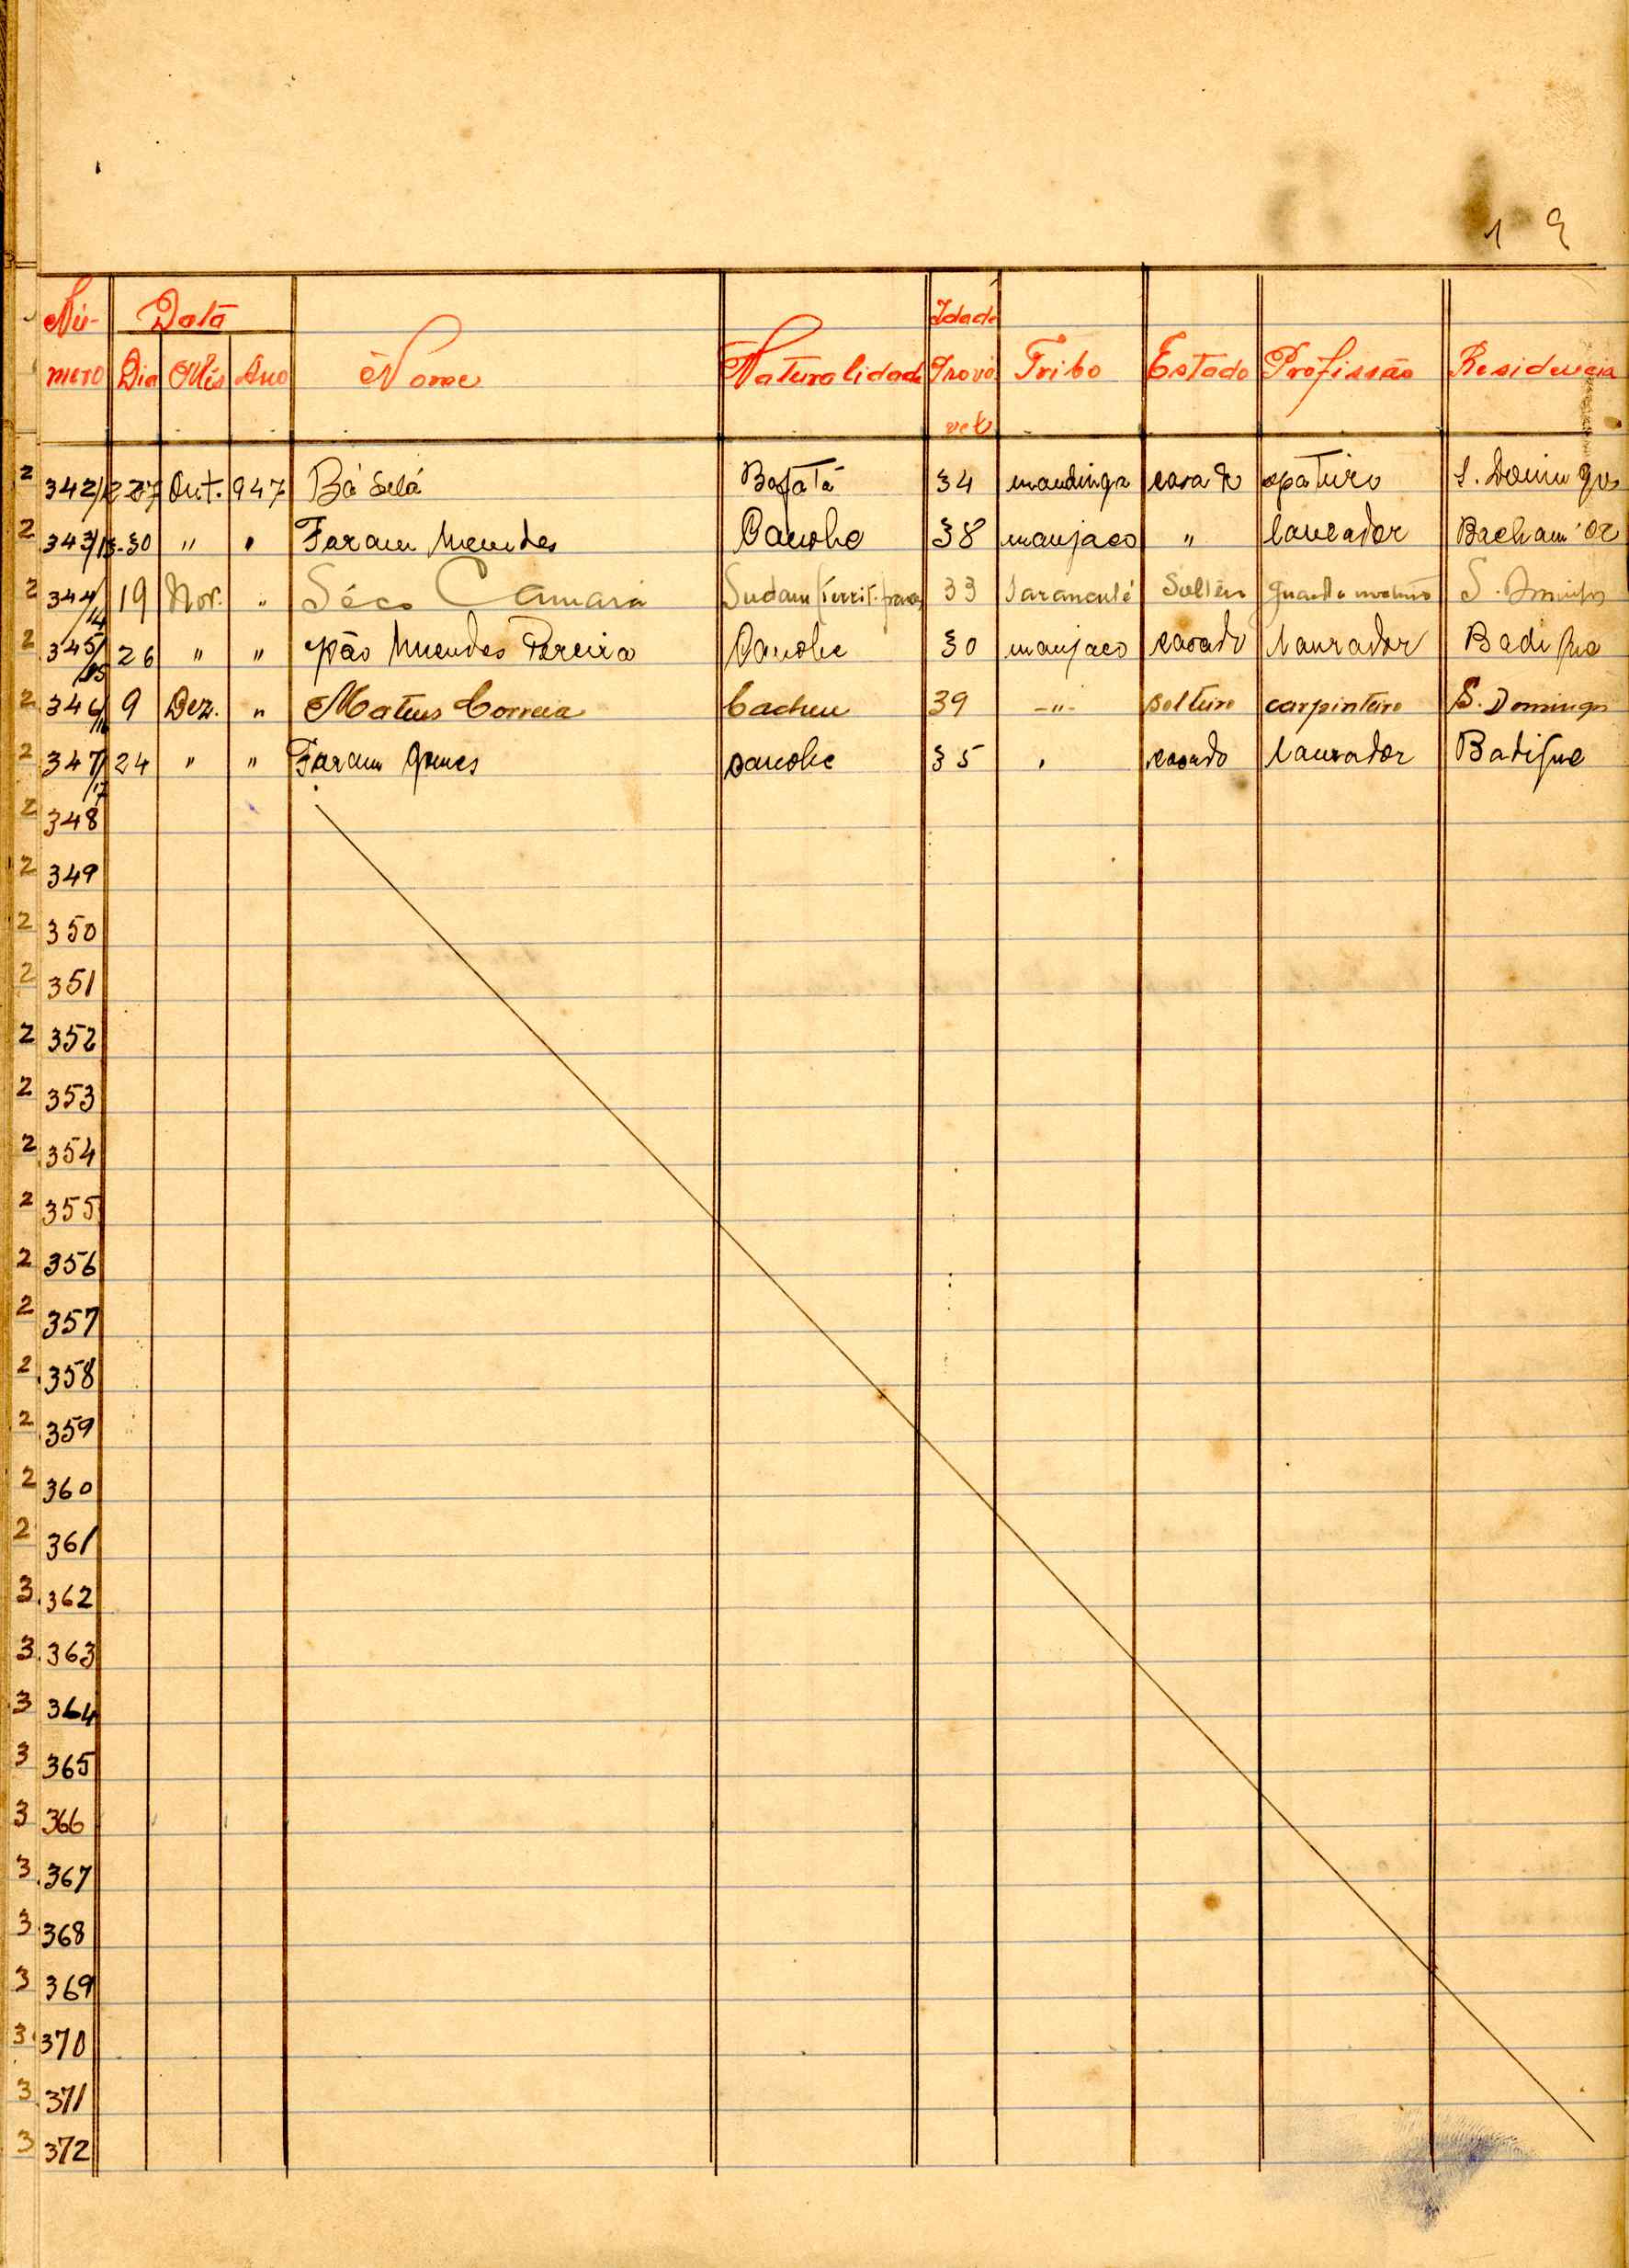 19
Nú- Data Idade
mero Dia Mês Ano Nome Naturalidade Prová Tribo Estado Profissão Residencia
vel
2 342/ 27 Out. 947 Bá Selá Bafatá 34 mandinga casado S. Domingos
2 343/13 30 " " Faram Mendes Canobe 38 manjaco " lavrador
2 344/14 19 Nov. " Séco Camara Sudam (territ. 33 Saranculé Soltéro guarda S. Domingos
2 345/15 26 " " João Mendes Pereira Canobe 30 manjaco casado lavrador
2 346/16 9 Dez. " Mateus Correia Cacheu 39 -"- solteiro carpinteiro S. Domingos
2 347/17 24 " " Faram Gomes canobe 35 " casado lavrador
2 348
2 349
2 350
2 351
2 352
2 353
2 354
2 355
2 356
2 357
2 358
2 359
2 360
2 361
3 362
3 363
3 364
3 365
3 366
3 367
3 368
3 369
3 370
3 371
3 372